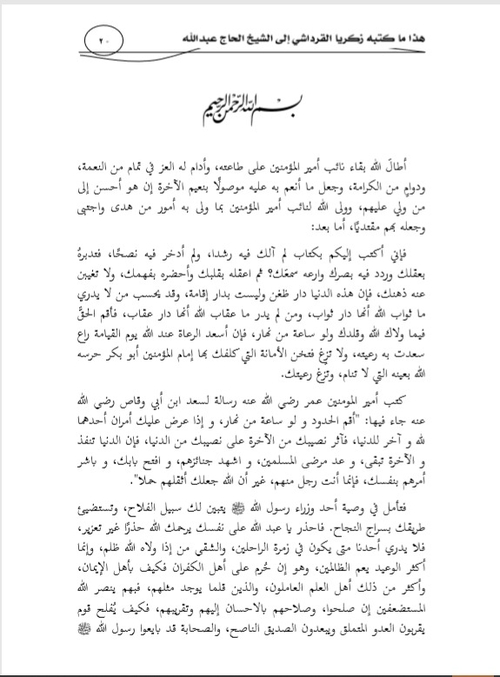 هذا ما كتبه زكريا القرداشي إلى الشيخ الحاج عبدالله
٢٠
بسم الله الرحمن الرحيم
أطالَ الله بقاء نائب أمير المؤمنين على طاعته، وأدام له العز في تمام من النعمة،
ودوامٍ من الكرامة، وجعل ما أنعم به عليه موصولًا بنعيم الآخرة إن هو أحسن إلى
من ولي عليهم، وولى الله لنائب أمير المؤمنين بما ولى به أمور من هدى واجتبى
وجعله بهم مقتديًا، أما بعد:
فإني أكتب إليكم بكتاب لم آلك فيه رشدا، ولم أدخر فيه نصحًا، فتدبرهُ
بعقلك وردد فيه بصرك وارعه سمعَك؟ ثم اعقله بقلبك وأحضره بفهمك، ولا تغيبن
عنه ذهنك، فإن هذه الدنيا دار ظعن وليست بدار إقامة، وقد يحسب من لا يدري
ما ثواب الله أنها دار ثواب، ومن لم يدر ما عقاب الله أنها دار عقاب، فأقم الحقَّ
فيما ولاك الله وقلدك ولو ساعة من نهار، فإن أسعد الرعاة عند الله يوم القيامة راع
سعدت به رعيته، ولا تزغ فتخن الأمانة التي كلفك بها إمام المؤمنين أبو بكر حرسه
الله بعينه التي لا تنام، وتزغ رعيتك.
كتب أمير المومنين عمر رضي الله عنه رسالة لسعد ابن أبي وقاص رضي الله
عنه جاء فيها: "أقم الحدود و لو ساعة من نهار، و إذا عرض عليك أمران أحدهما
لله و آخر للدنيا، فآثر نصيبك من الآخرة على نصيبك من الدنيا، فإن الدنيا تنفذ
و الآخرة تبقى، و عد مرضى المسلمين، و اشهد جنائزهم، و افتح بابك، و باشر
أمرهم بنفسك، فإنما أنت رجل منهم، غير أن الله جعلك أثقلهم حملا".
فتأمل في وصية أحد وزراء رسول الله ﷺ يتبين لك سبيل الفلاح، وتستضيئ
طريقك بسراج النجاح. فاحذر يا عبد الله على نفسك يرحمك الله حذرًا غير تعزير،
فلا يدري أحدنا متى يكون في زمرة الراحلين، والشقي من إذا ولاه الله ظلم، وإنما
أكثر الوعيد يعم الظالمين، وهو إن حُرم على أهل الكفران فكيف بأهل الإيمان،
وأكثر من ذلك أهل العلم العاملون، والذين قلما يوجد مثلهم، فبهم ينصر الله
المستضعفين إن صلحوا، وصلاحهم بالاحسان إليهم وتقريبهم، فكيف يُفلح قوم
يقربون العدو المتملق ويبعدون الصديق الناصح، والصحابة قد بايعوا رسول الله ﷺ